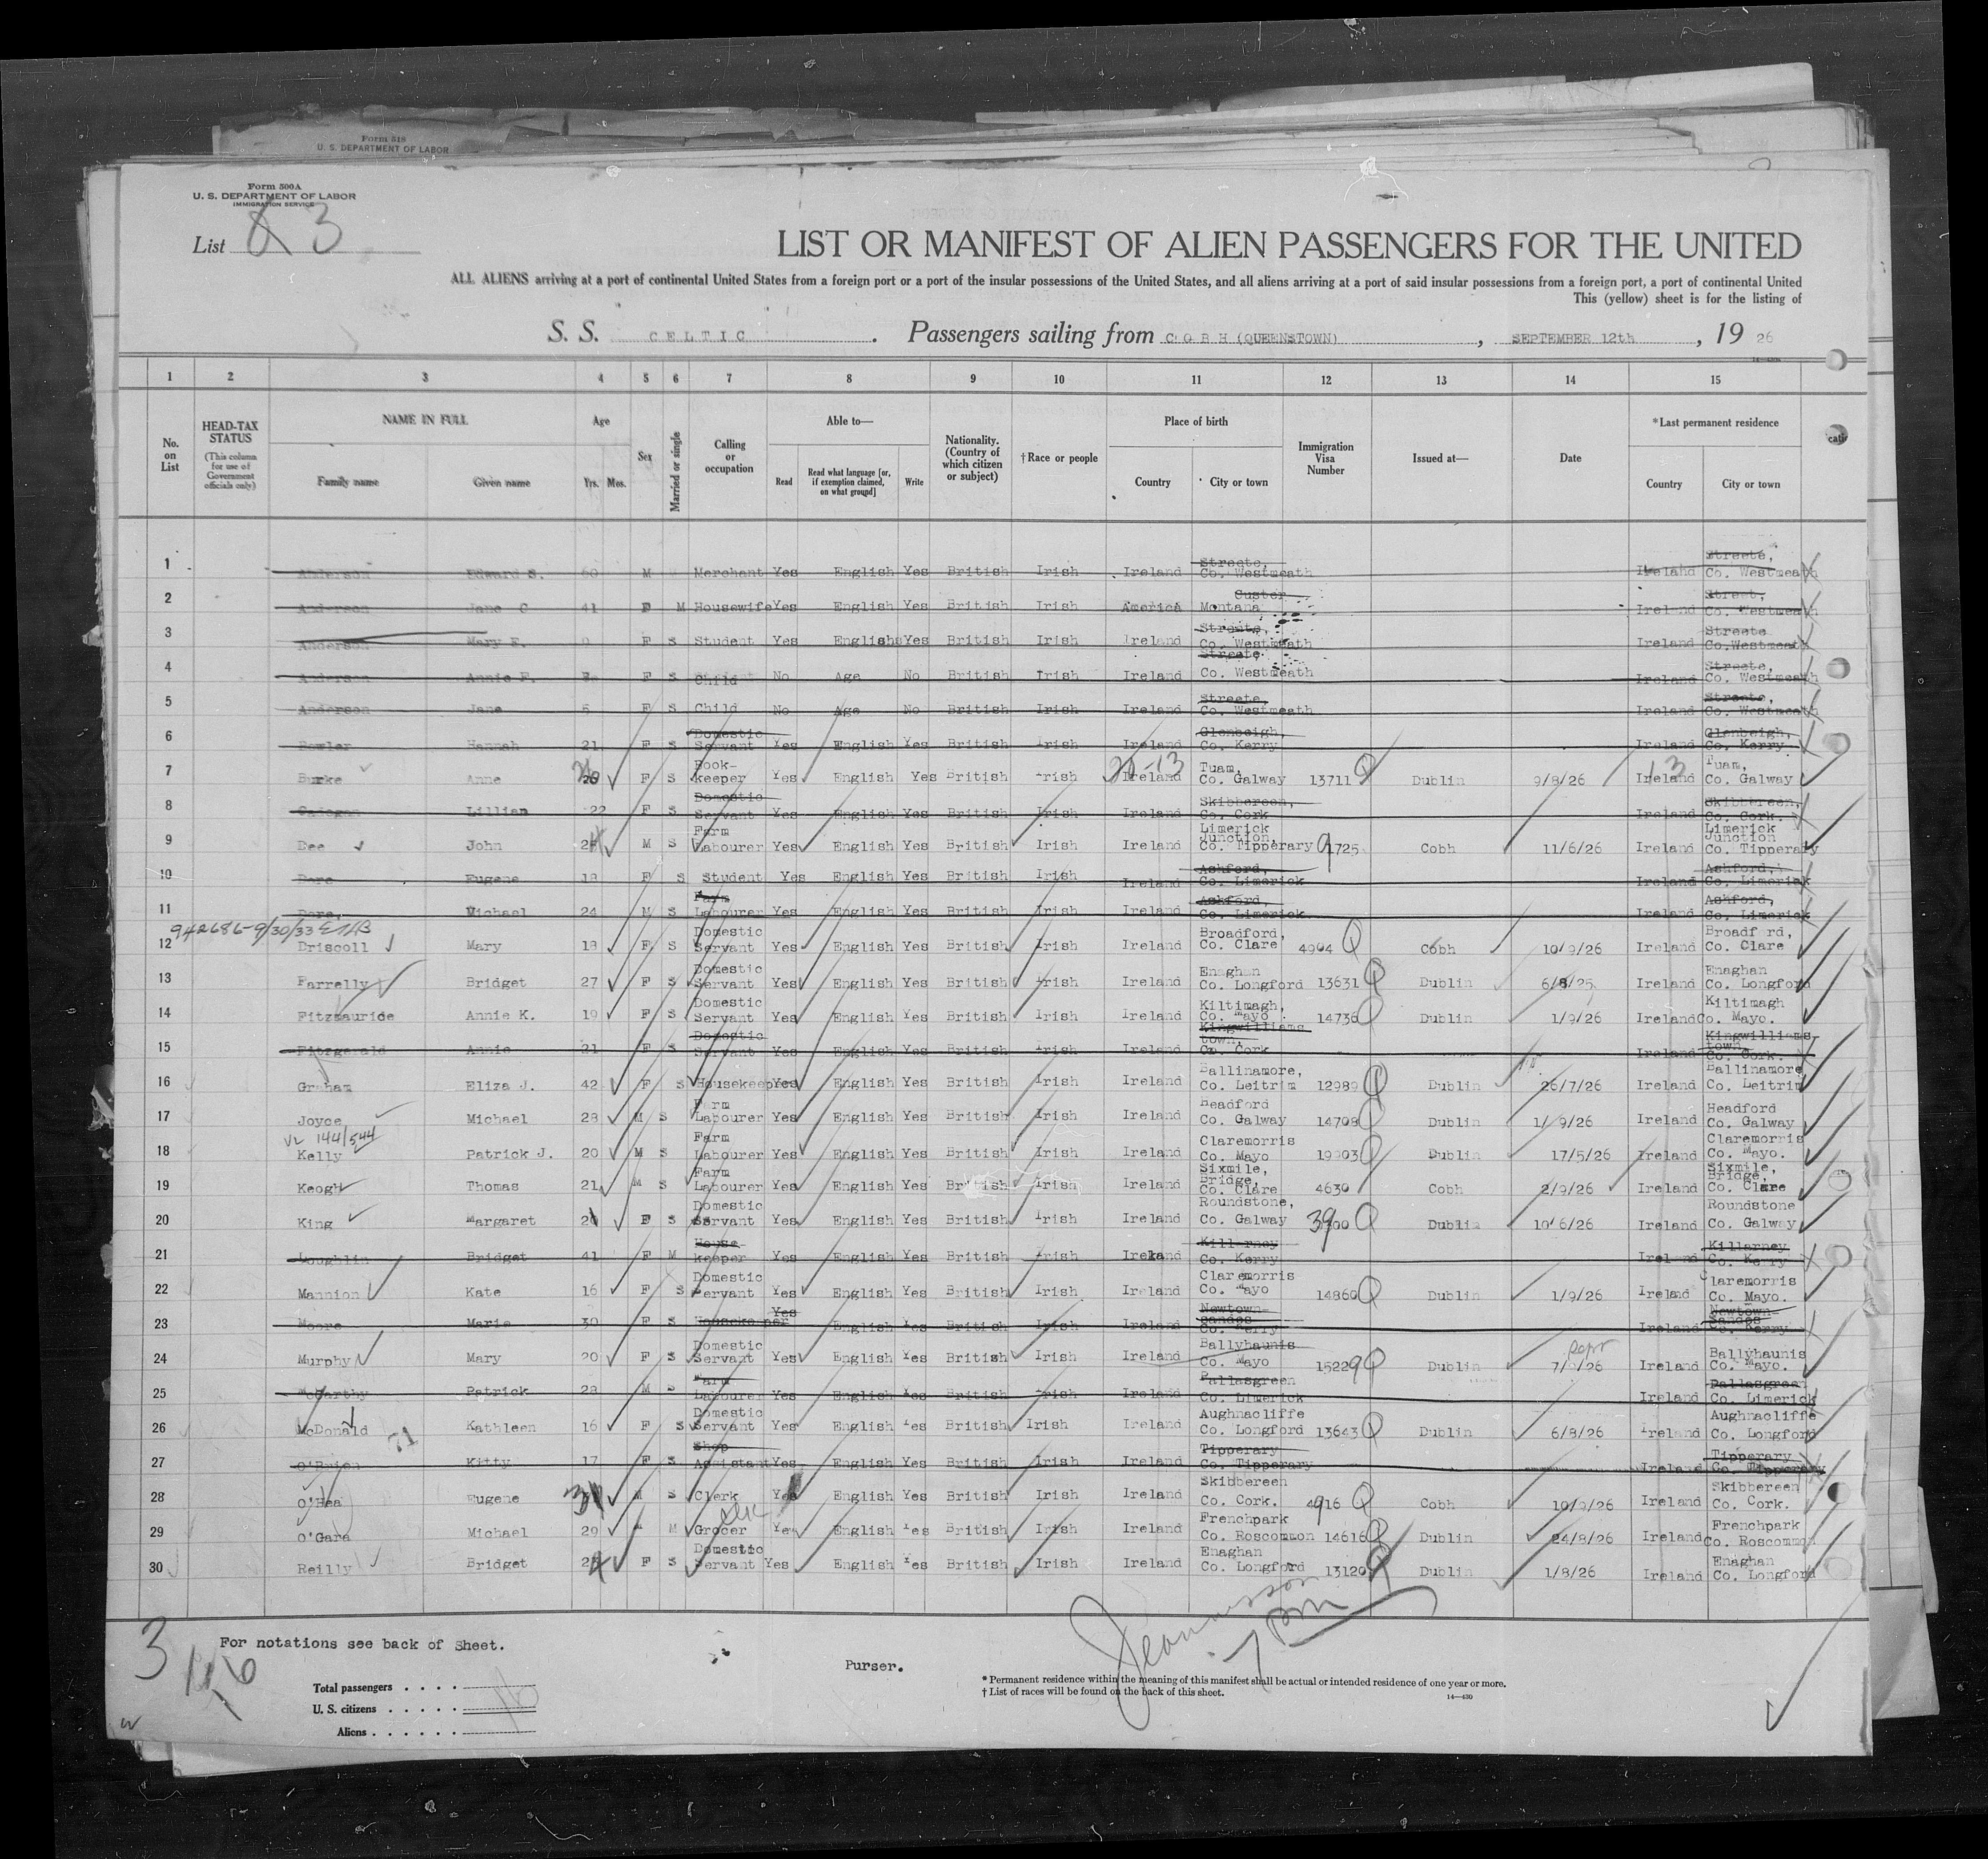 Form 518
U. S. DEPARTMENT OF LABOR
Form 500A
U. S. DEPARTMENT OF LABOR
IMMIGRATION SERVICE
List 3
LIST OR MANIFEST OF ALIEN PASSENGERS FOR THE UNITED
ALL ALIENS arriving at a port of continental United States from a foreign port or a port of the insular possessions of the United States, and all aliens arriving at a port of said insular possessions from a foreign port, a port of continental United
This (yellow) sheet is for the listing of
S. S. CELTIC . Passengers sailing from COBH (QUEENSTOWN) , SEPTEMBER 12th , 19 26
1 2 3 4 5 6 7 8 9 10 11 12 13 14 15
No. on List HEAD-TAX STATUS (This column for use of Government officials only) NAME IN FULL Family name Given name Age Yrs. Mos. Sex Married or single Calling or occupation Able to— Read Read what language [or, if exemption claimed, on what ground] Write Nationality. (Country of which citizen or subject) †Race or people Place of birth Country City or town Immigration Visa Number Issued at— Date *Last permanent residence Country City or town
1 Anderson Edward S. 60 M Merchant Yes English Yes British Irish Ireland Streete, Co. Westmeath Ireland Streete, Co. Westmeath
2 Anderson Jane C 41 F M Housewife Yes English Yes British Irish America Custer Montana Ireland Street, Co. Westmeath
3 Anderson Mary E. F S Student Yes English Yes British Irish Ireland Streete, Co. Westmeath Ireland Streete Co. Westmeath
4 Anderson Annie F. F S Child No Age No British Irish Ireland Streete Co. Westmeath Ireland Streete, Co. Westmeath
5 Anderson Jane F S Child No Age No British Irish Ireland Streete, Co. Westmeath Ireland Streete, Co. Westmeath
6 Fowler Hannah 21 F S Domestic Servant Yes English Yes British Irish Ireland Glenbeigh, Co. Kerry Ireland Glenbeigh, Co. Kerry
7 Burke Anne F S Book-keeper Yes English Yes British Irish Ireland Tuam, Co. Galway 13711 Dublin 9/8/26 Ireland Tuam, Co. Galway
8 Cadogan Lillian 22 F S Domestic Servant Yes English Yes British Irish Ireland Skibbereen, Co. Cork Ireland Skibbereen, Co. Cork.
9 Dee John 24 M S Farm Labourer Yes English Yes British Irish Ireland Limerick Junction, Co. Tipperary 1725 Cobh 11/6/26 Ireland Limerick Junction Co. Tipperary
10 Dore Eugene 18 F S Student Yes English Yes British Irish Ireland Ashford, Co. Limerick Ireland Ashford, Co. Limerick
11 Dore, Michael 24 M S Farm Labourer Yes English Yes British Irish Ireland Ashford, Co. Limerick Ireland Ashford, Co. Limerick
942686-9/30/33
12 Driscoll Mary 18 F S Domestic Servant Yes English Yes British Irish Ireland Broadford, Co. Clare 4904 Cobh 10/9/26 Ireland Broadford, Co. Clare
13 Farrelly Bridget 27 F S Domestic Servant Yes English Yes British Irish Ireland Enaghan Co. Longford 13631 Dublin 6/8/25 Ireland Enaghan Co. Longford
14 Fitzmaurice Annie K. 19 F S Domestic Servant Yes English Yes British Irish Ireland Kiltimagh, Co. Mayo 14736 Dublin 1/9/26 Ireland Kiltimagh Co. Mayo.
15 Fitzgerald Annie 21 F S Domestic Servant Yes English Yes British Irish Ireland Kingwilliams town, Co. Cork Ireland Kingwilliams town, Co. Cork.
16 Graham Eliza J. 42 F S Housekeeper Yes English Yes British Irish Ireland Ballinamore, Co. Leitrim 12989 Dublin 26/7/26 Ireland Ballinamore Co. Leitrim
17 Joyce Michael 28 M S Farm Labourer Yes English Yes British Irish Ireland Headford Co. Galway 14708 Dublin 1/9/26 Ireland Headford Co. Galway
VL 144/544
18 Kelly Patrick J. 20 M S Farm Labourer Yes English Yes British Irish Ireland Claremorris Co. Mayo 19903 Dublin 17/5/26 Ireland Claremorris Co. Mayo.
19 Keogh Thomas 21 M S Farm Labourer Yes English Yes British Irish Ireland Sixmile, Bridge, Co. Clare 4630 Cobh 2/9/26 Ireland Sixmile, Bridge, Co. Clare
20 King Margaret F S Domestic Servant Yes English Yes British Irish Ireland Roundstone, Co. Galway Dublin 10/6/26 Ireland Roundstone Co. Galway
21 Loughlin Bridget 41 F M House keeper Yes English Yes British Irish Ireland Killarney Co. Kerry Ireland Killarney Co. Kerry
22 Mannion Kate 16 F S Domestic Servant Yes English Yes British Irish Ireland Claremorris Co. Mayo 14860 Dublin 1/9/26 Ireland Claremorris Co. Mayo.
23 Moore Marie 30 F S Housekeeper Yes English Yes British Irish Ireland Newtown Sandes Co. Kerry Ireland Newtown Sandes Co. Kerry
24 Murphy Mary 20 F S Domestic Servant Yes English Yes British Irish Ireland Ballyhaunis Co. Mayo 15229 Dublin 7/9/26 Ireland Ballyhaunis Co. Mayo.
25 McCarthy Patrick 28 M S Farm Labourer Yes English Yes British Irish Ireland Pallasgreen Co. Limerick Ireland Pallasgreen Co. Limerick
26 McDonald Kathleen 16 F S Domestic Servant Yes English Yes British Irish Ireland Aughnacliffe Co. Longford 13643 Dublin 6/8/26 Ireland Aughnacliffe Co. Longford
27 O'Brien Kitty 17 F S Shop Assistant Yes English Yes British Irish Ireland Tipperary Co. Tipperary Ireland Tipperary Co. Tipperary
28 O'Hea Eugene M S Clerk Yes English Yes British Irish Ireland Skibbereen Co. Cork. 4916 Cobh 10/9/26 Ireland Skibbereen Co. Cork.
29 O'Gara Michael 29 M M Grocer Yes English Yes British Irish Ireland Frenchpark Co. Roscommon 14616 Dublin 24/8/26 Ireland Frenchpark Co. Roscommon
30 Reilly Bridget F S Domestic Servant Yes English Yes British Irish Ireland Enaghan Co. Longford 13120 Dublin 1/8/26 Ireland Enaghan Co. Longford
3
For notations see back of Sheet.
Purser.
Total passengers
U. S. citizens
Aliens
* Permanent residence within the meaning of this manifest shall be actual or intended residence of one year or more.
† List of races will be found on the back of this sheet.
14—430